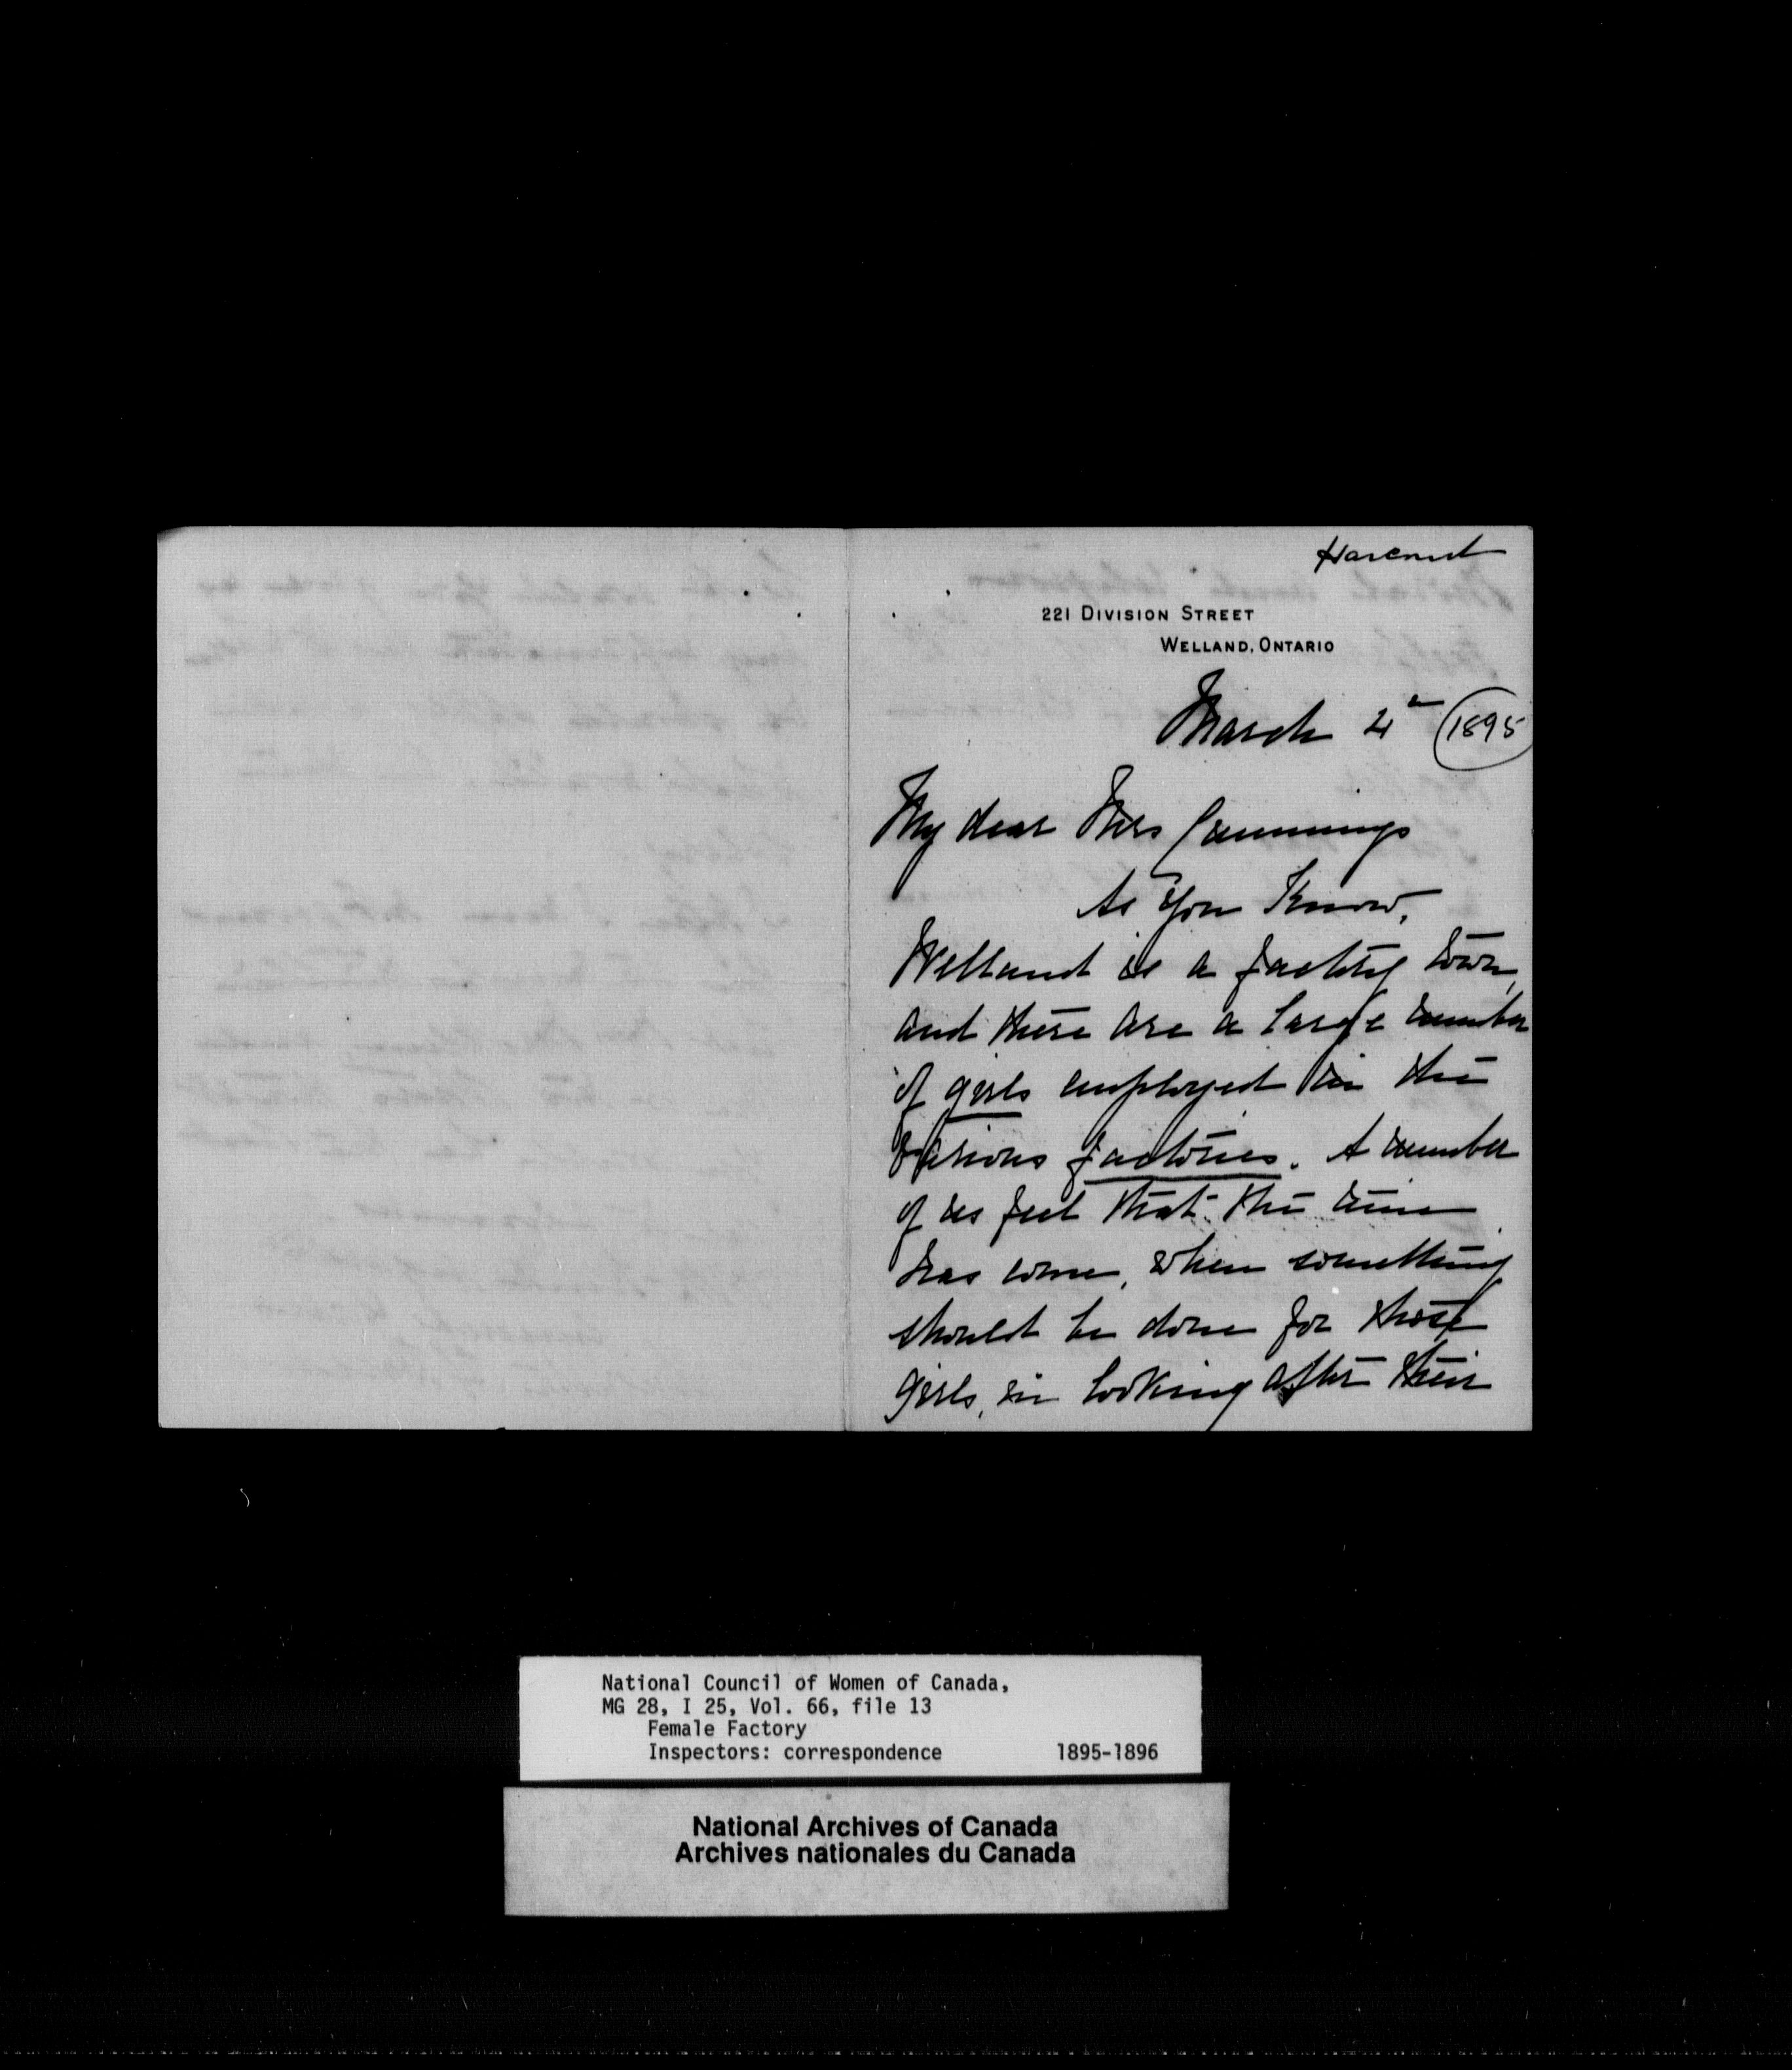 Harcourt
221 DIVISION STREET
WELLAND, ONTARIO
March 4th 1895
My dear Mrs Cummings
As you know,
Welland is a factory town,
and there are a large number
of girls employed in the
various factories. A number
of us feel that the time
has come, when something
should be done for those
girls, in looking after their
National Council of Women of Canada,
MG 28, I 25, Vol. 66, file 13
Female Factory
Inspectors: correspondence 1895-1896
National Archives of Canada
Archives nationales du Canada